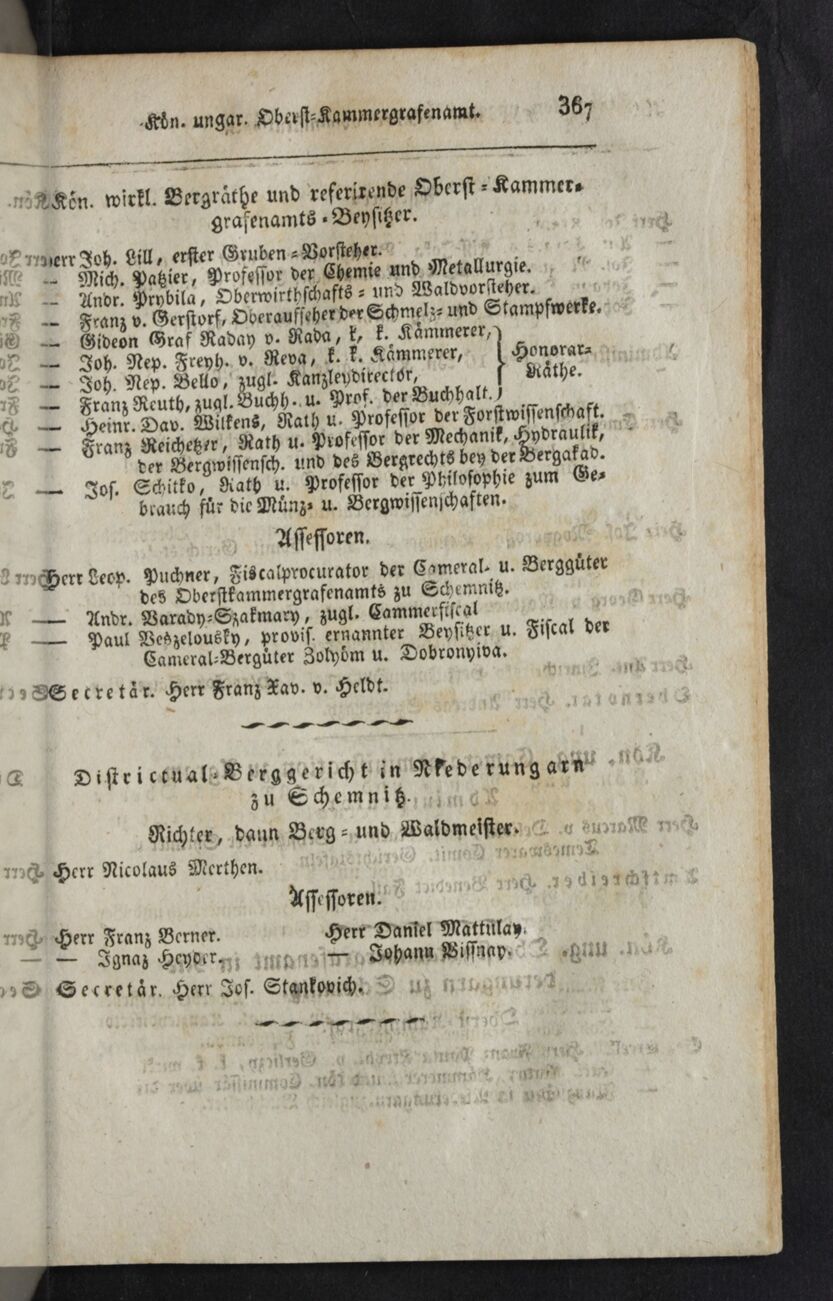 Kön. ungar. Oberst-Kammergrafenamt. 367
Kön. wirkl. Bergräthe und referirende Oberst-Kammer-
grafenamts-Beysitzer.
Herr Joh. Lill, erster Gruben-Vorsteher.
— Mich. Patzier, Professor der Chemie und Metallurgie.
— Andr. Prybila, Oberwirthschafts- und Waldvorsteher.
— Franz v. Gerstorf, Oberaufseher der Schmelz- und Stampfwerke.
— Gideon Graf Raday v. Rada, k. k. Kämmerer,
— Joh. Nep. Freyh. v. Reva, k. k. Kämmerer,
— Joh. Nep. Bello, zugl. Kanzleydirector,
— Franz Reuth, zugl. Buchh. u. Prof. der Buchhalt.
Honorar-
Räthe.
— Heinr. Dav. Wilkens, Rath u. Professor der Forstwissenschaft.
— Franz Reichetzer, Rath u. Professor der Mechanik, Hydraulik,
der Bergwissensch. und des Bergrechts bey der Bergakad.
— Jos. Schitko, Rath u. Professor der Philosophie zum Ge-
brauch für die Münz- u. Bergwissenschaften.
Assessoren.
Herr Leop. Puchner, Fiscalprocurator der Cameral- u. Berggüter
des Oberstkammergrafenamts zu Schemnitz.
— Andr. Varady-Szakmary, zugl. Cammerfiscal
— Paul Veszelousky, provis. ernannter Beysitzer u. Fiscal der
Cameral-Bergüter Zolyöm u. Dobronyiva.
Secretär. Herr Franz Xav. v. Heldt.
Districtual-Berggericht in Niederungarn
zu Schemnitz.
Richter, dann Berg- und Waldmeister.
Herr Nicolaus Merthen.
Assessoren.
Herr Franz Berner. Herr Daniel Mattulay.
— Ignaz Heyder. — Johann Wissnay.
Secretär. Herr Jos. Stankovich.